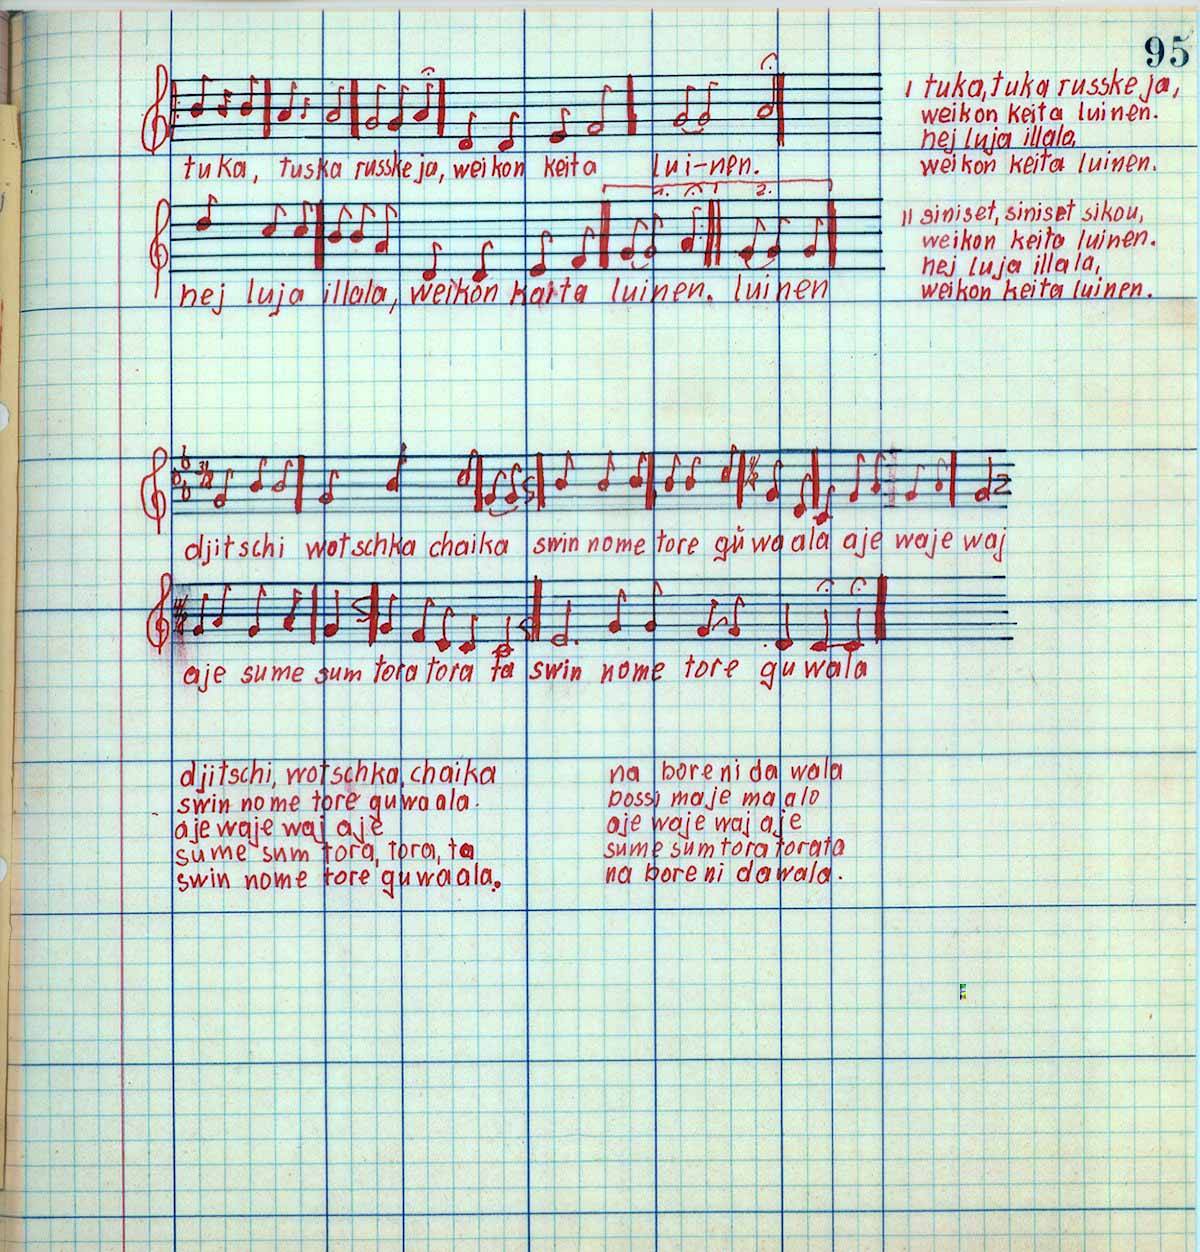 95
tuka, tuska russke ja, weikon keita lui-nen.
1. 2.
hej luja illala, weikon kaita luinen. luinen
I tuka, tuka russke ja,
weikon keita luinen.
hej luja illala,
weikon keita luinen.
II siniset, siniset sikou,
weikon keita luinen.
hej luja illala,
weikon keita luinen.
djitschi wotschka chaika swin nome tore guwaala aje waje waj
aje sume sum tora tora ta swin nome tore guwala
djitschi, wotschka, chaika
swin nome tore guwaala.
aje waje waj aje
sume sum tora, tora, ta
swin nome tore guwaala.
na bore ni da wala
bossi maje maalo
aje waje waj aje
sume sum tora torata
na bore ni dawala.